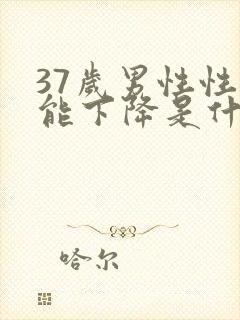 37歲男性性
能下降是什
哈尔